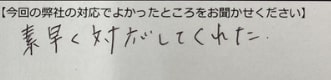 【今回の弊社の対応でよかったところをお聞かせください】
素早く対応してくれた.